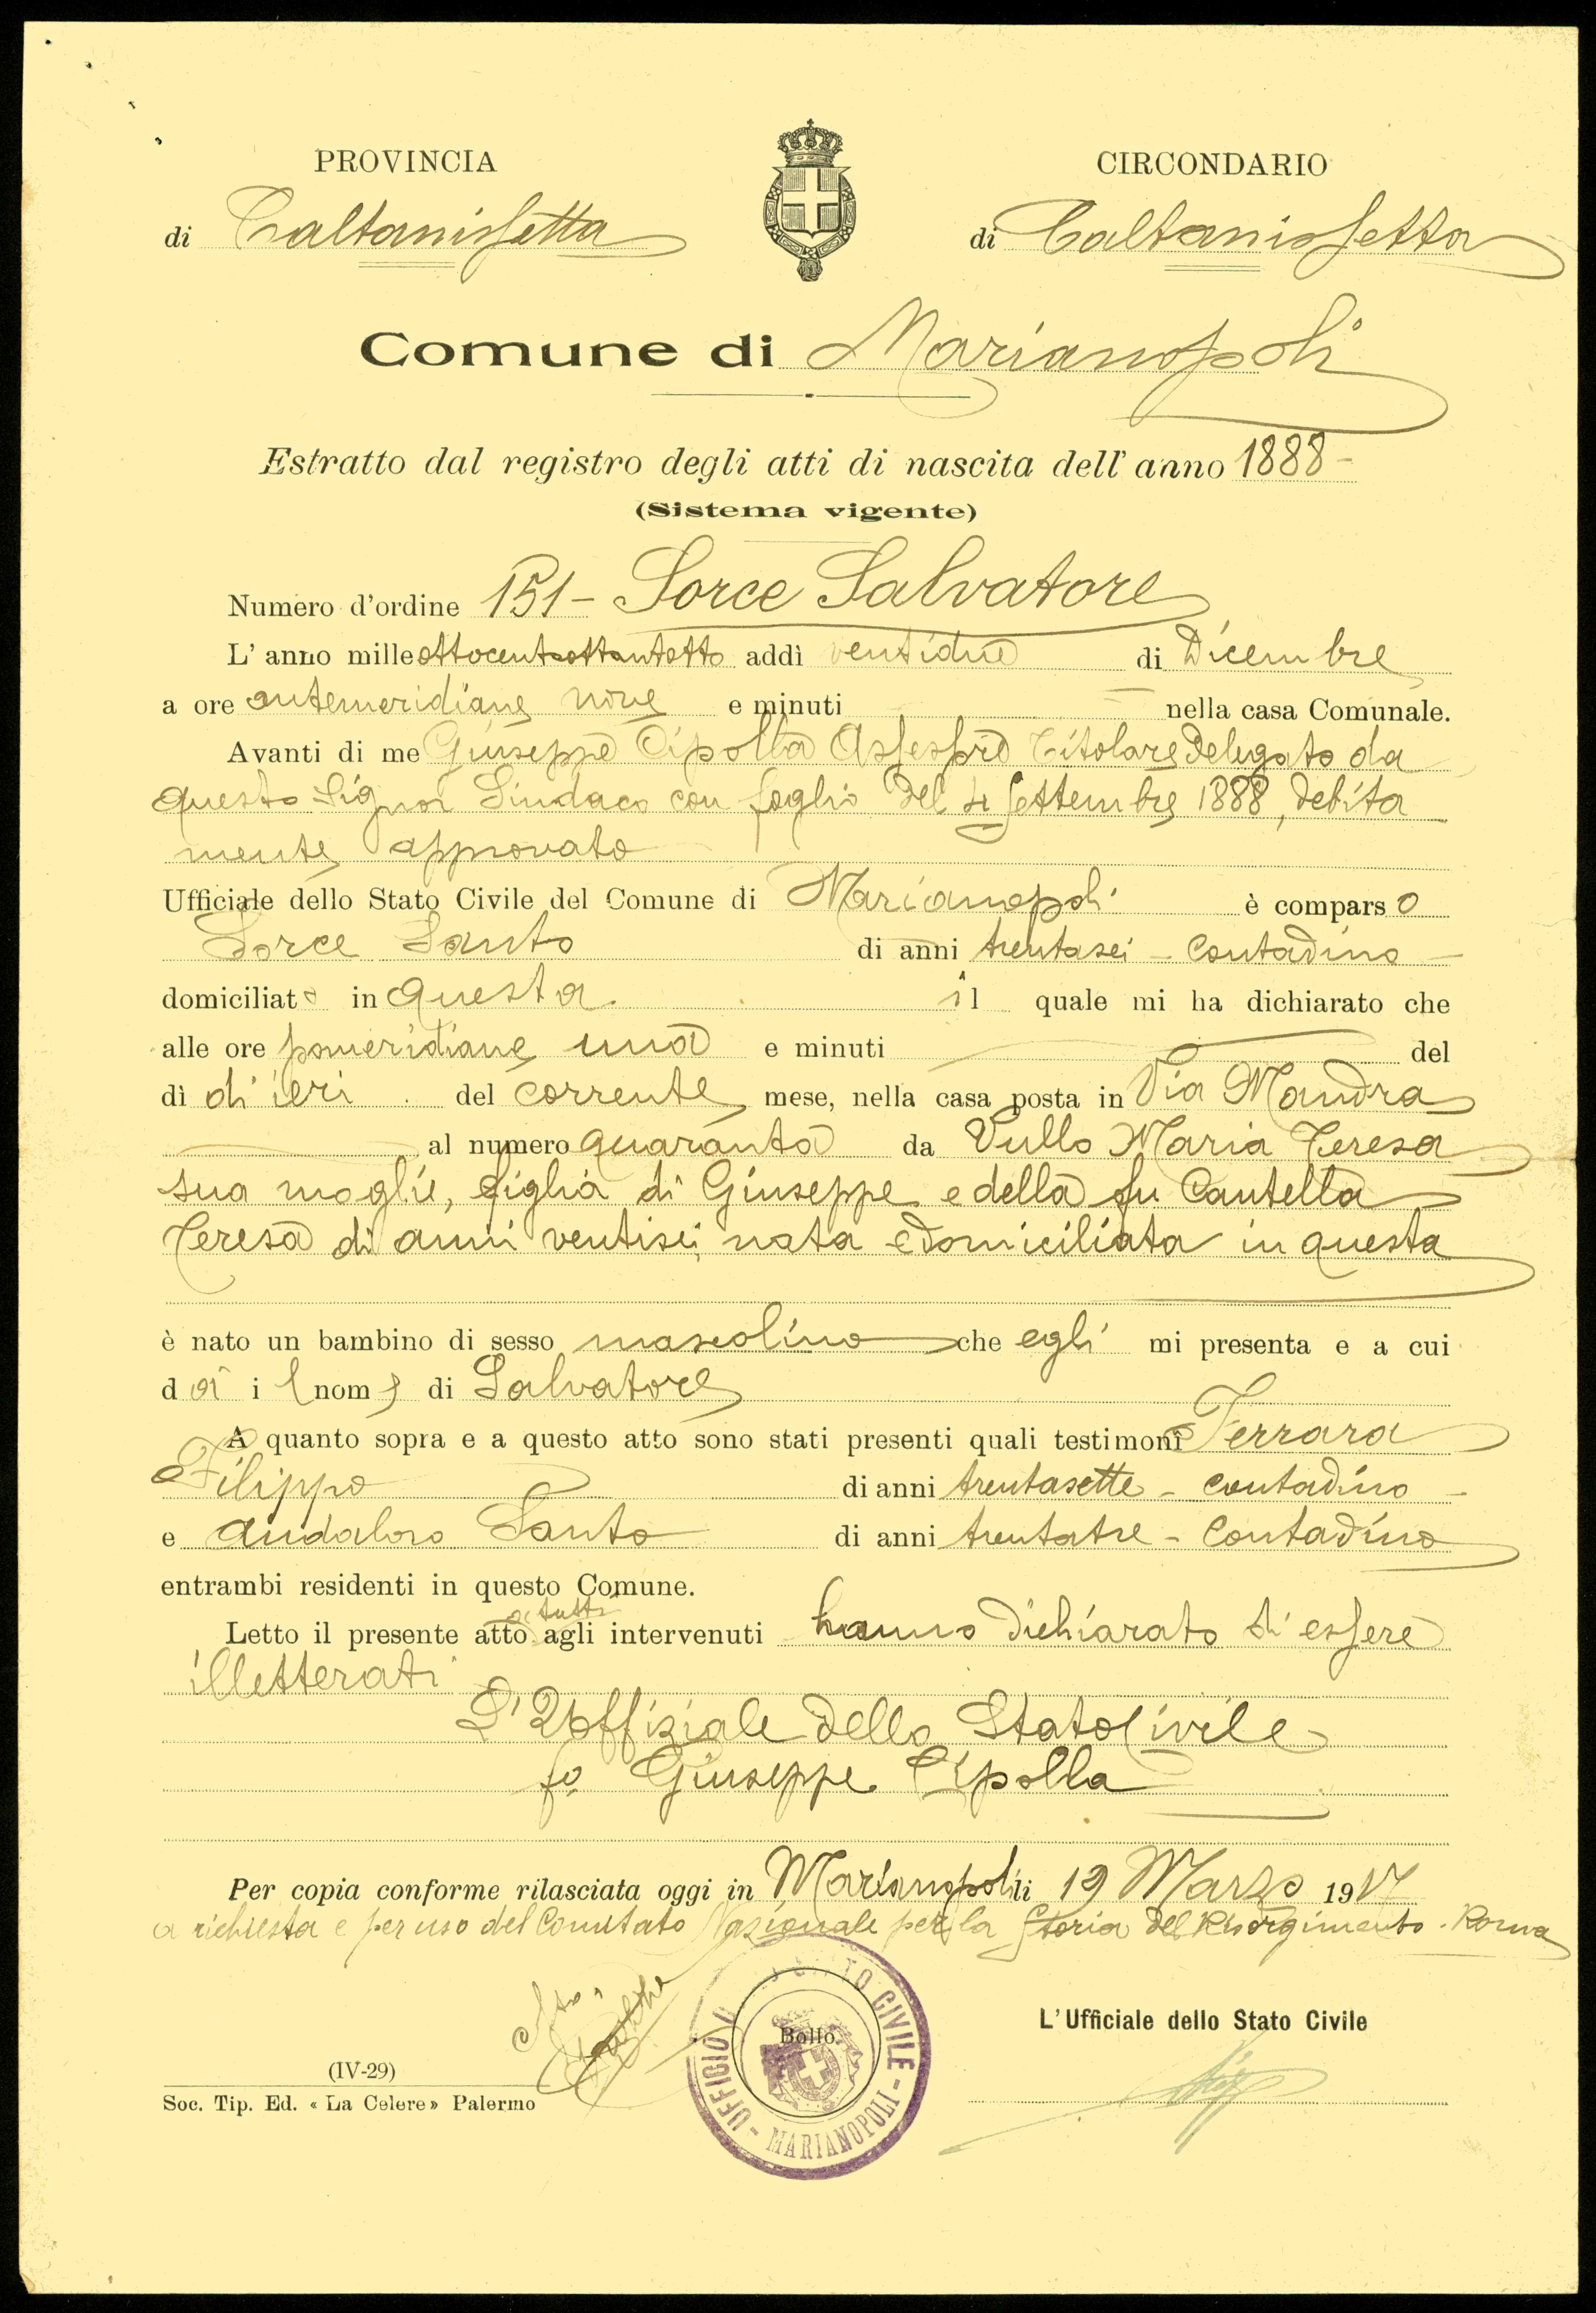 PROVINCIA
di Caltanissetta
CIRCONDARIO
di Caltanissetta
Comune di Marianopoli
Estratto dal registro degli atti di nascita dell'anno 1888-
(Sistema vigente)
Numero d'ordine 151- Sorce Salvatore
L'anno mille ottocentottantotto addì ventidue di Dicembre
a ore antemeridiane nove e minuti = nella casa Comunale.
Avanti di me Giuseppe Cipolla Assessore Titolare Delegato da
questo Signor Sindaco con foglio del 4 Settembre 1888, debita
mente approvato
Ufficiale dello Stato Civile del Comune di Marianopoli è comparso
Sorce Santo di anni trentasei - contadino -
domiciliato in questa. il quale mi ha dichiarato che
alle ore pomeridiane una e minuti — del
dì di ieri del corrente mese, nella casa posta in Via Mandra
— al numero quaranta da Vullo Maria Teresa
sua moglie, figlia di Giuseppe e della fu Cantella
Teresa di anni ventisei, nata e domiciliata in questa
è nato un bambino di sesso mascolino che egli mi presenta e a cui
dà i l nome di Salvatore
A quanto sopra e a questo atto sono stati presenti quali testimoni Ferrara
Filippo di anni trentasette - contadino -
e Andaloro Santo di anni trentatre - contadino
entrambi residenti in questo Comune.
a tutti
Letto il presente atto agli intervenuti hanno dichiarato di essere
illetterati
L'Uffiziale dello Stato Civile
fo Giuseppe Cipolla
Per copia conforme rilasciata oggi in Marianopoli li 19 Marzo 1917
a richiesta e per uso del Comitato Nazionale per la Storia del Risorgimento - Roma
UFFICIO STATO CIVILE - MARIANOPOLI -
Bollo.
L'Ufficiale dello Stato Civile
(IV-29)
Soc. Tip. Ed. « La Celere » Palermo